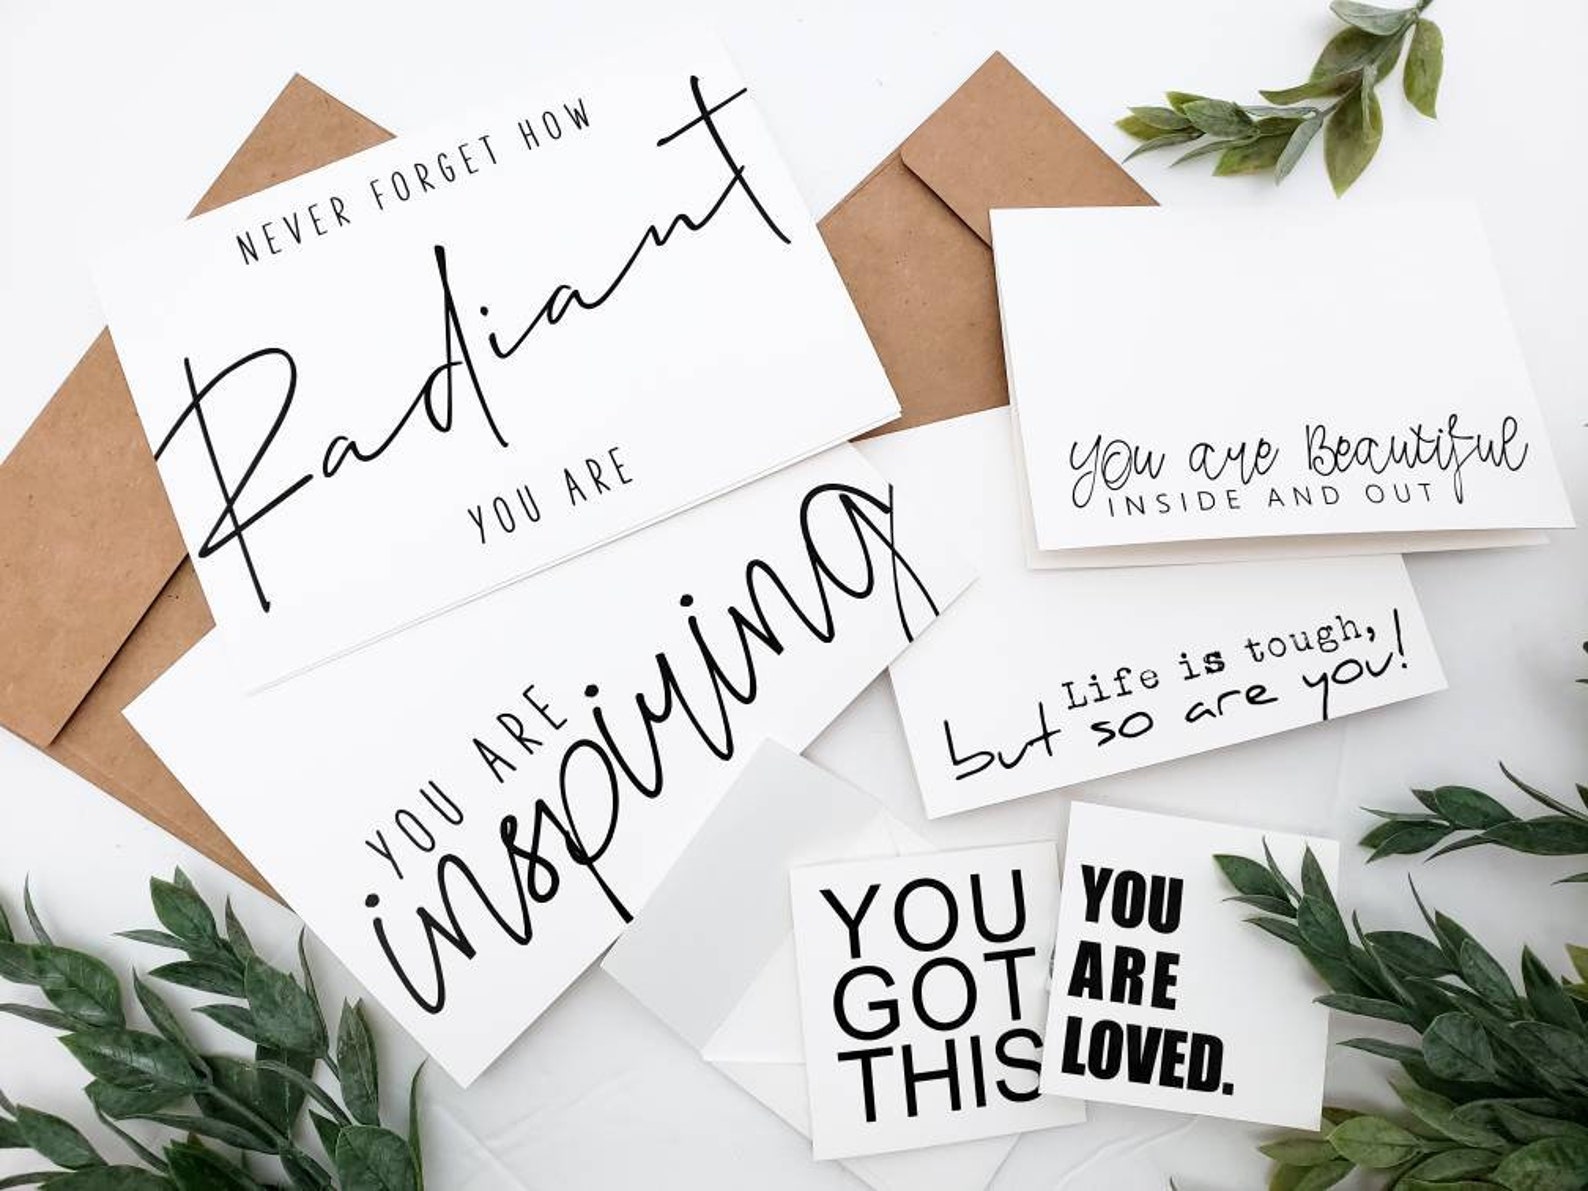 NEVER FORGET HOW
Radiant
YOU ARE
YOU ARE
inspiring
You are Beautiful
INSIDE AND OUT
Life is tough,
but so are you!
YOU
GOT
THIS
YOU
ARE
LOVED.